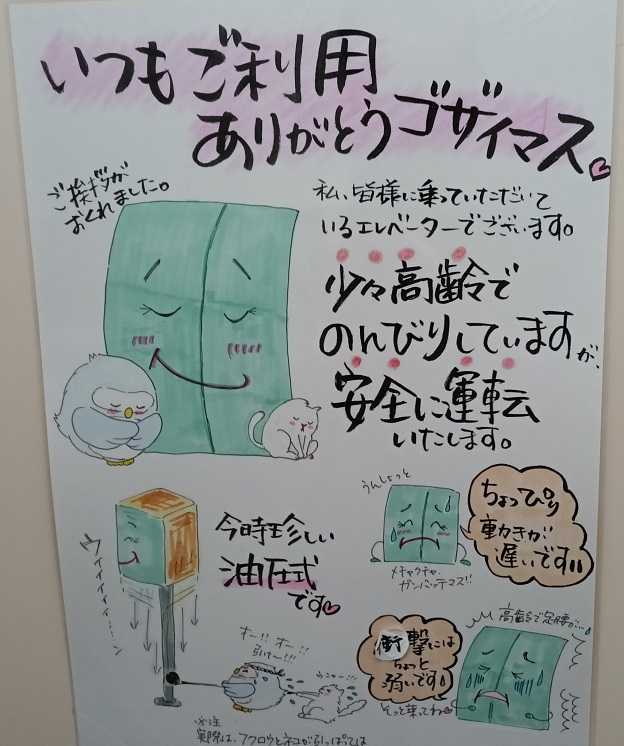 いつもご利用
ありがとうゴザイマス
ご挨拶が
おくれました。
私、皆様に乗っていただいて
いるエレベーターでございます。
少々高齢で
のんびりしていますが、
安全に運転
いたします。
今時珍しい
油圧式
です
ウィィィィィ……ン
うんしょっと
ちょっぴり
動きが
遅いです!!
メチャクチャ
ガンバッテマス!!
オー!!オー!!
衝撃には
ちょっと
弱いです!
そっと乗ってね
高齢で足腰が…
※注
実際は、フクロウとネコがひっぱっては